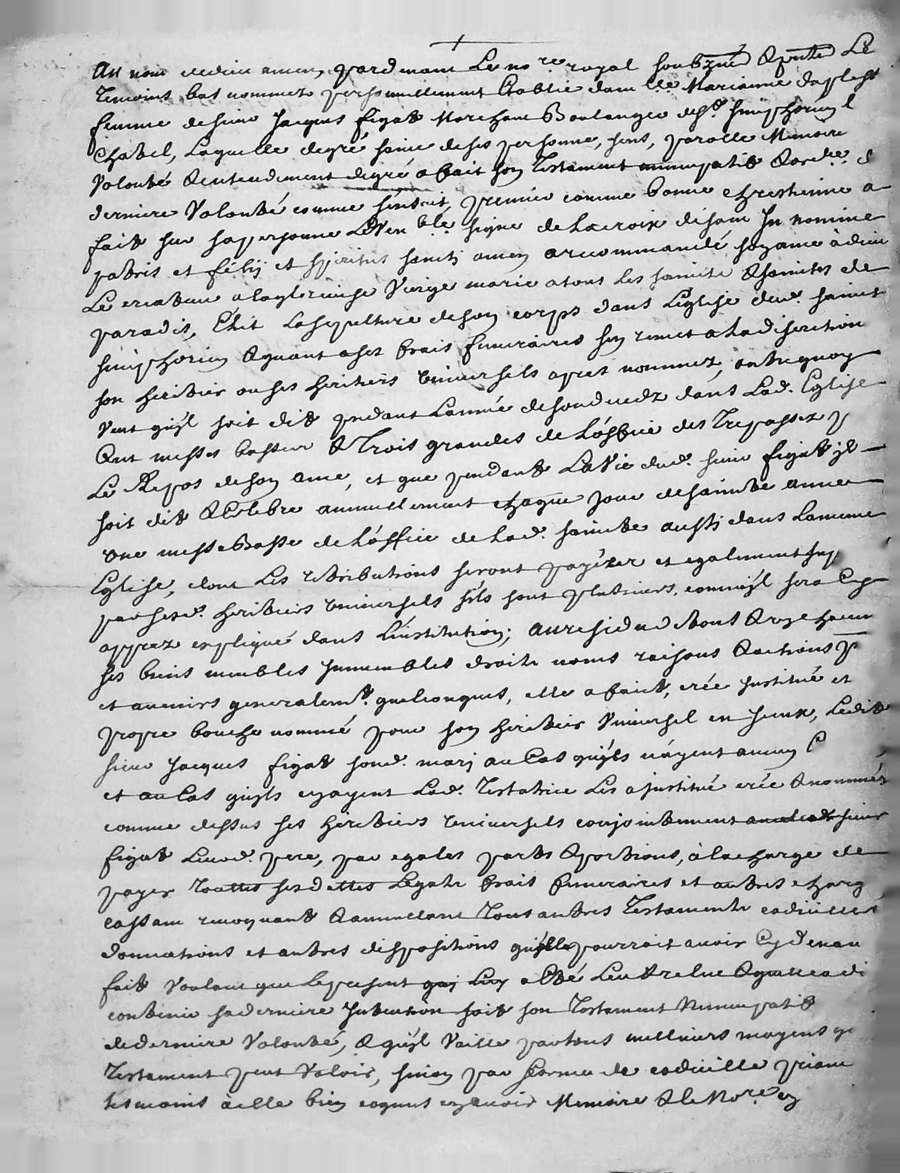 Au nom de dieu amen, pardevant Le no.re royal soubzné & pnts Le
Temoins bas nommez personnellement Establie dam.lle Marianne
femme de sieur Jacques figat Marchand Boulanger de st. simphorien
Chatel, Laquelle de gré saine de ses personne, sens, parolle Memoire
Volonté & entendement de gré a fait son Testament nuncupatif &
derniere Volonté comme sensuit, premier comme bonne chrestienne a
fait sur sa personne Le Ven.ble signe de La croix disant In nomine
patris et filij et spiritus sancti amen a recommandé son ame à dieu
Le createur a la glorieuse Vierge marie a tous les saints & saintes de
paradis, Elit La sepulture de son corps dans L'Eglise dud. sainct
simphorien & quant a ses frais funeraires sen remet a La discretion
son heritier ou ses heritiers Universels apres nommez, outre quoy
Veut quil soit dit pendant L'année de son deceds dans Lad. Eglise
Cent messes basses & Trois grandes de L'office des Trepassez p
Le Repos de son ame, et que pendant La Vie dud. sieur figat il
soit dit & Celebre annuellement chaque jour de sainte anne
une messe basse de L'office de Lad. sainte aussi dans La meme
Eglise, dont Les retributions seront payées et egalement
par sesd. heritiers universels s'ils sont plusieurs, comme il sera Cy
appres expliqué dans L'institution; au residud de tous &
ses biens meubles Immeubles droits noms raisons & actions p
et avenirs generalem.t quelconques, elle a fait, crée Institué et
propre bouche nommé pour son heritier Universel en seuls, Ledit
sieur Jacques figat sond. mary au Cas qu'ils n'ayent aucun
et au Cas qu'ils en ayent Lad. Testatrice Les a Institué crée & nommés
comme dessus ses heritiers universels conjointement sieur
figat Leurd. pere, par egales parts & portions, à la charge de
payer Touttes ses dettes Legats frais funeraires et autres charg
cassant revoquant & annullant Tous autres Testaments codicilles
donnations et autres dispositions qu'elle pourroit avoir Cy devan
fait Voulant que Le present qui Luy a eté Leu & relue
contenir sa derniere Intention soit son Testament Nuncupatif
de derniere Volonté, & qu'il Vaille par tous meilleurs moyens q
Testament peut Valoir, sinon par forme de codicille priant
tesmoins à elle bien cognus en avoir Memoire & Le No.re